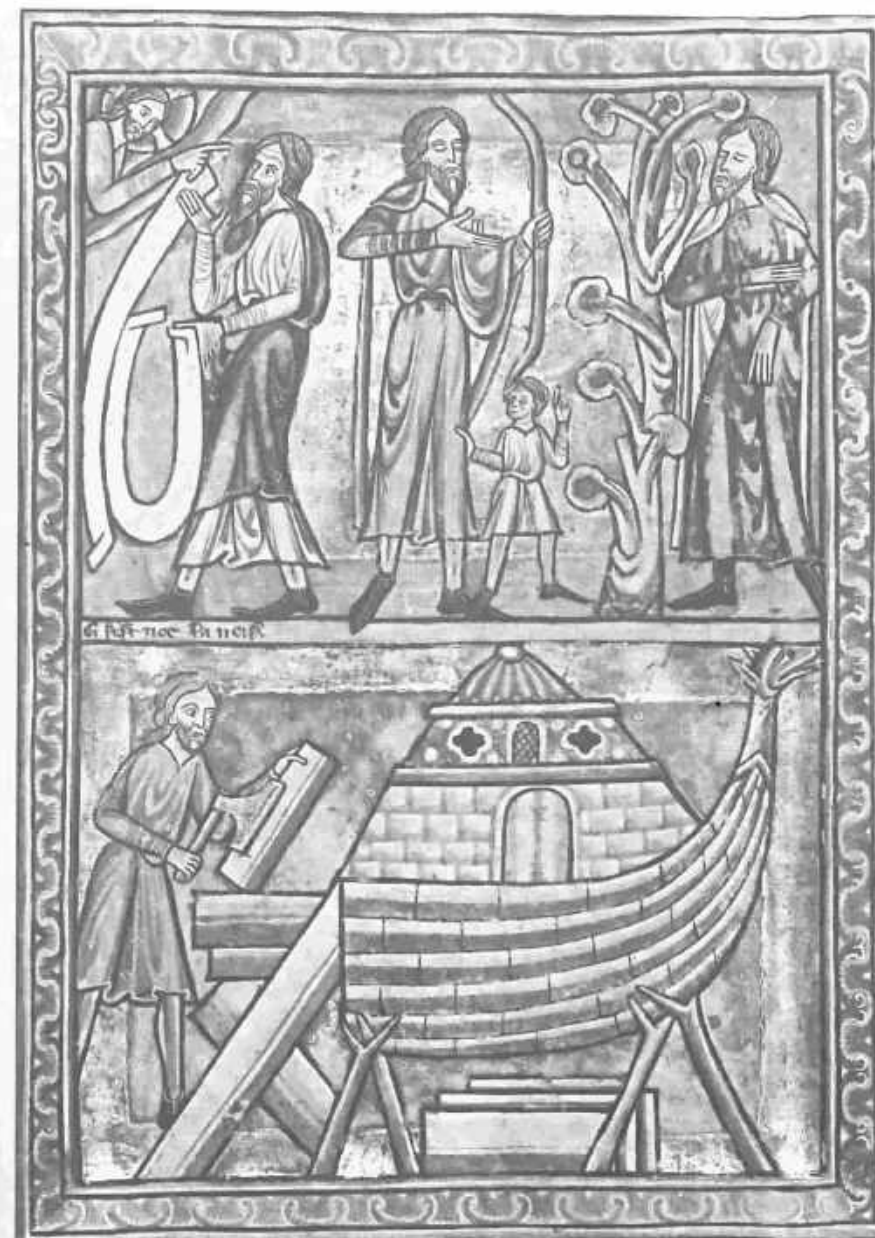 Ci fist noe sa neif